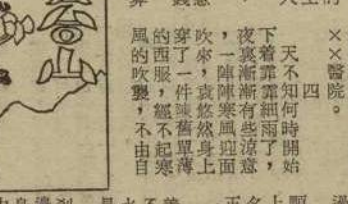 ××醫院。
四
天不知何時開始
下着霏霏細雨了，
夜裏漸漸有些涼意
，一陣陣寒風迎面
吹來，袁悠然身上
穿了一件陳舊單薄
的西服，經不起寒
風的吹襲，不由自